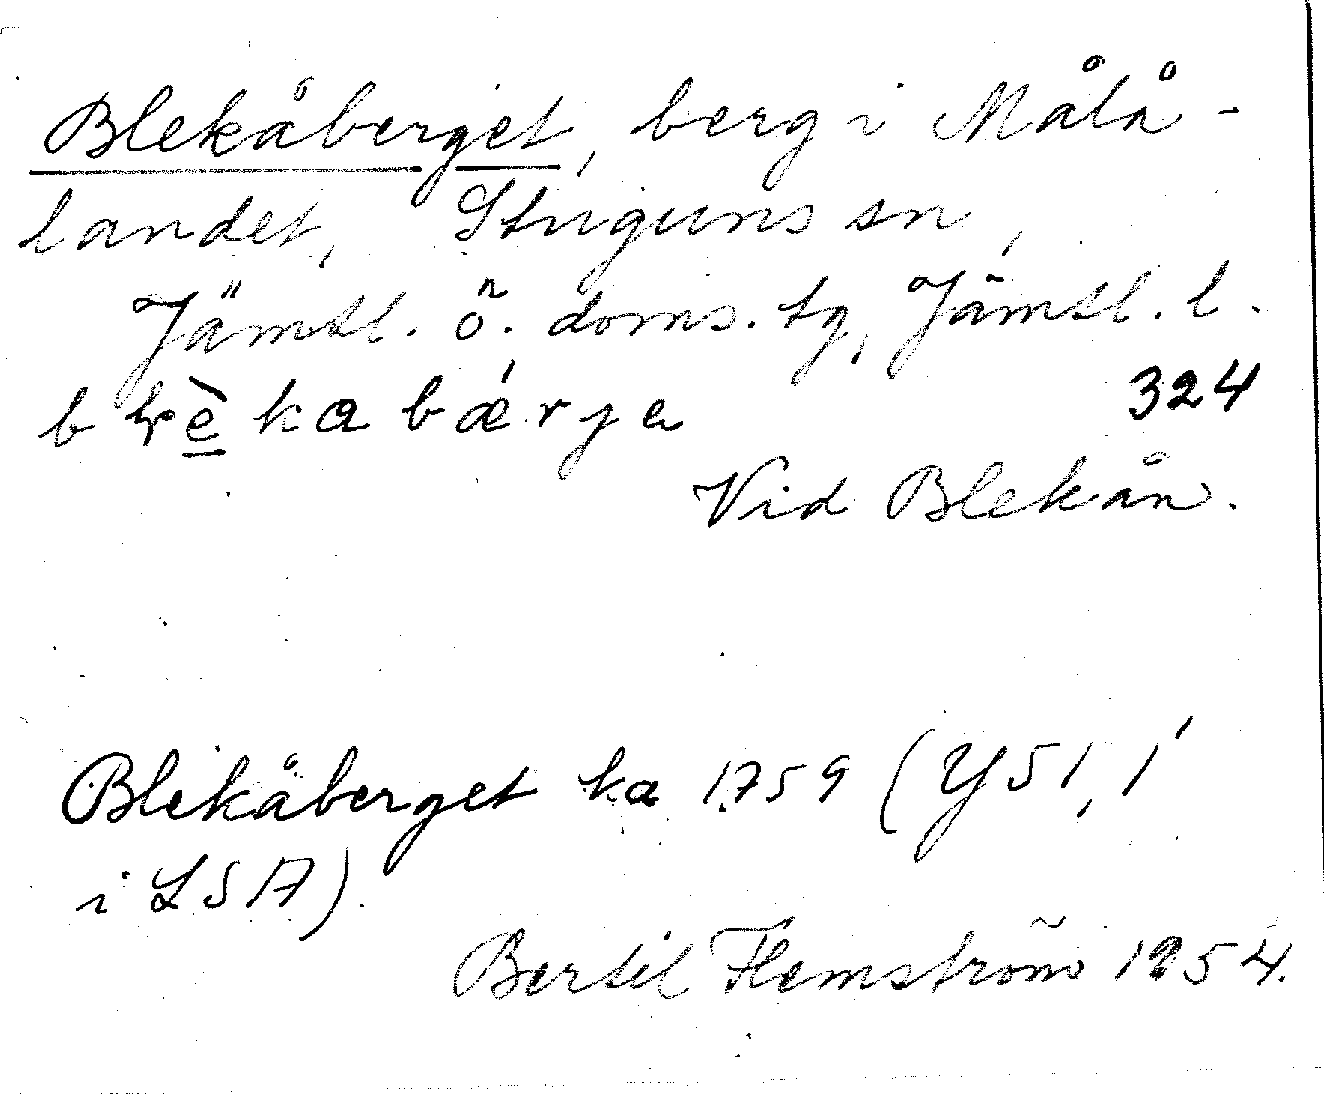 Blekåberget, berg i Målå-
landet, Stuguns sn,
Jämtl. ö. doms. tg, Jämtl. l.
324
Vid Blekån.
Blekåberget ka 1759 (Y51, 1
i LSA).
Bertil Flemström 1954.